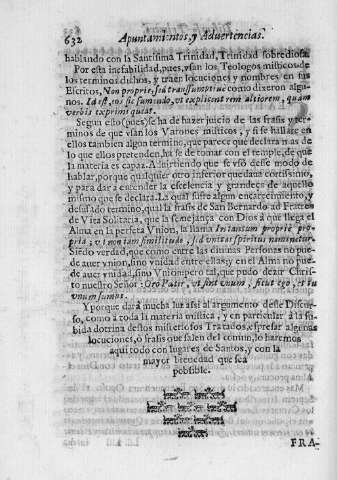 632 Apuntamientos, y Advertencias.
hablando con la Santissima Trinidad, Trinidad sobrediosa.
Por esta inefabilidad, pues, vsan los Teologos misticos de
los terminos dichos, y traen locuciones y nombres en sus
Escritos, Non proprie, sed transsumptiue como dizeron algu-
nos. Id est, eos sic sumendo, vt explicent rem altiorem, quam
verbis exprimi queat.
Segun esto (pues) se ha de hazer juicio de las frasis y ter-
minos de que vsan los Varones misticos, y si se hallare en
ellos tambien algun termino, que parece que declara mas de
lo que ellos pretenden, ha se de tomar con el temple, de que
la materia es capaz. Aduirtiendo que se vsò desse modo de
hablar, porque qualquier otro inferior quedaua cortissimo,
y para dar a entender la escelencia y grandeça de aquello
mismo que se declara. La cual sufre algun encarecimiento, y
desusado termino, qual la frasis de San Bernardo ad Fratres
de Vita Solitaria, que la semejança con Dios à que llega el
Alma en la perfeta Vnion, la llama In tantum propriè pro-
pria; vt non tam similitudo, sed vnitas spiritus nominetur.
Siedo verdad, que como entre las diuinas Personas no pue-
de auer vnion, sino vnidad entre ellas; y en el Alma no pue-
de auer vnidad, sino Vnion; pero tal, que pudo dezir Chris-
to nuestro Señor: Oro Pater, vt sint vnum, sicut ego, et tu
vnum sumus.
Y porque darà mucha luz assi al argumento deste Discur-
so, como à toda la materia mistica, y en particular à la su-
bida dotrina destos misteriosos Tratados, espresar algunas
locuciones, o frasis que salen del comun, lo haremos
aqui todo con lugares de Santos, y con la
mayor breuedad que sea
possible.
FRA-